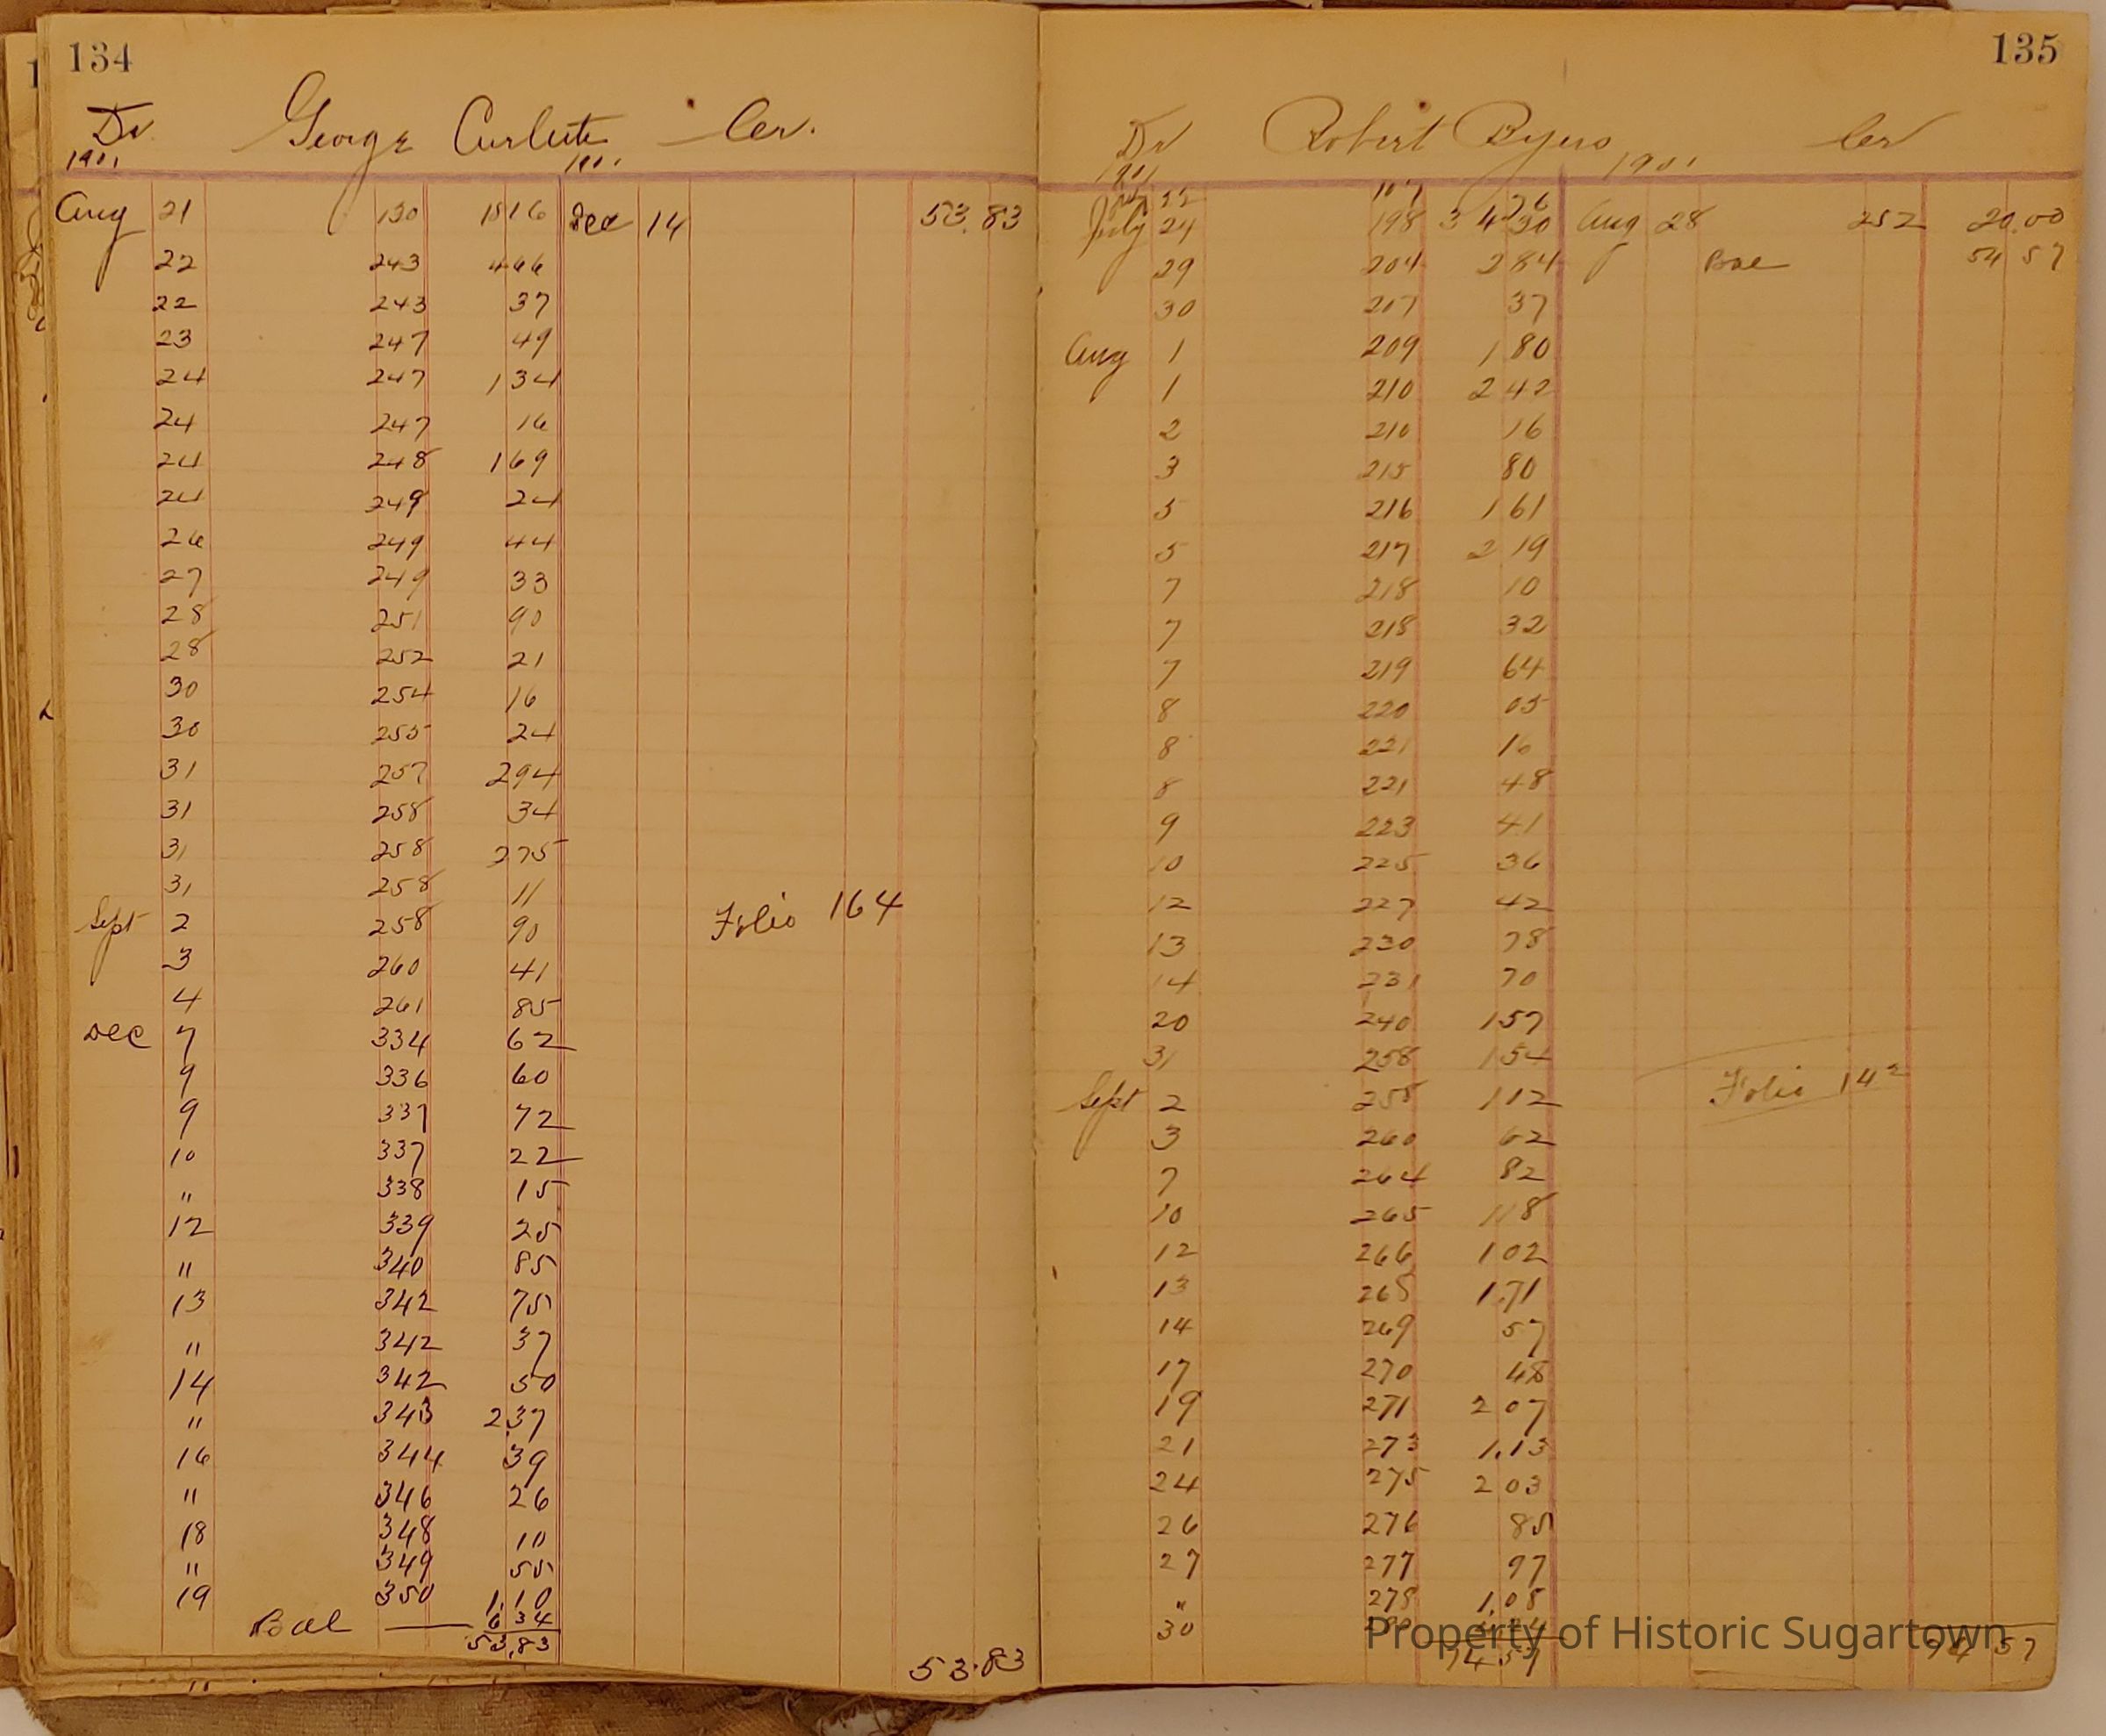 134
Dr. George Curlett Cr.
1901 1901
Aug 21 130 1816 Dec 14 53.83
22 243 466
22 243 37
23 247 49
24 247 134
24 247 16
24 248 169
24 249 24
26 249 44
27 249 33
28 251 90
28 252 21
30 254 16
30 255 24
31 257 294
31 258 34
31 258 275
31 258 11
Sept 2 258 90 Folio 164
3 260 41
4 261 85
Dec 7 334 62
9 336 60
9 337 72
10 337 22
" 338 15
12 339 25
" 340 85
13 342 75
" 342 37
14 342 50
" 343 2.37
16 344 39
" 346 26
18 348 10
" 349 55
19 350 1.10
Bal 6 34
53.83 53.83
135
Dr Robert Byers Cr
1901 1901
22 197 26
July 24 198 34 30 Aug 28 252 20.00
29 204 284 Bal 54 57
30 207 37
Aug 1 209 1 80
1 210 2 42
2 210 16
3 215 80
5 216 1 61
5 217 2 19
7 218 10
7 218 32
7 219 64
8 220 05
8 221 16
8 221 48
9 223 41
10 225 36
12 227 42
13 230 78
14 231 70
20 240 157
31 258 154
Sept 2 258 112 Folio 142
3 260 62
7 264 82
10 265 118
12 266 1 02
13 268 1.71
14 269 57
17 270 48
19 271 2 07
21 273 1.13
24 275 2 03
26 276 85
27 277 97
" 278 1.08
30
74 57 74 57
Property of Historic Sugartown